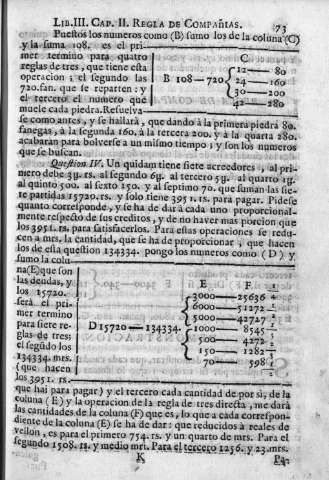 LIB. III. CAP. II. REGLA DE COMPAÑIAS. 73
Puestos los numeros como (B) sumo los de la coluna (C)
y la suma 108. es el pri-
mer termino para quatro
reglas de tres, que tiene esta
operacion; el segundo las
720. fan. que se reparten: y
el tercero el numero que
muele cada piedra. Resuelva
B 108 — 720
C
12 — 80
24 — 160
30 — 200
42 — 280
se como antes, y se hallará, que dando à la primera piedra 80.
fanegas, à la segunda 160, à la tercera 200. y à la quarta 280.
acabaràn para bolverse a un mismo tiempo; y son los numeros
que se buscan.
Question IV. Un quidam tiene siete acreedores, al pri-
mero debe 3y. rs. al segundo 6y. al tercero 5y. al quarto 1y.
al quinto 500. al sexto 150. y al septimo 70. que suman las sie-
te partidas 15720. rs. y solo tiene 3951. rs. para pagar. Pidese
quanto corresponde, y se ha de dar à cada uno proporcional-
mente respecto de sus creditos, y de no haver mas porcion que
los 3951. rs. para satisfacerlos. Para estas operaciones se redu-
cen a mrs. la cantidad, que se ha de proporcionar, que hacen
los de esta question 134334. pongo los numeros como (D) y
sumo la colu-
na (E) que son
las deudas, y
los 15720.
serà el pri-
mer termino
para siete re-
glas de tres;
el segudo los
134334. mrs.
(que hacen
los 3951. rs.
D 15720 — 134334.
E F
3000 — 25636
6000 — 51272
5000 — 42727
1000 — 8545
500 — 4272
150 — 1282
70 — 598
que hai para pagar) y el tercero cada cantidad de por sì, de la
coluna (E) y la operacion de la regla de tres directa, me darà
las cantidades de la coluna (F) que es, lo que a cada correspon-
diente de la coluna (E) se ha de dar: que reducidos à reales de
vellon, es para el primero 754. rs. y un quarto de mrs. Para el
segundo 1508. rs. y medio mri. Para el tercero 1256. y 23. mrs.
K Pa-